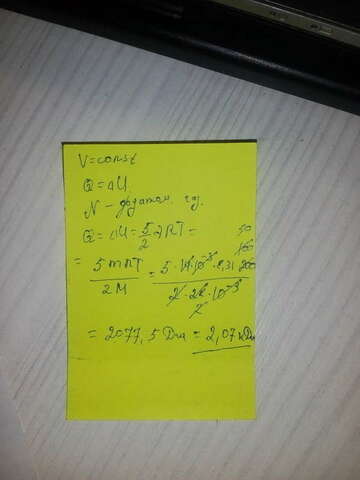 V=const
Q=ΔU.
N - двухатом. газ.
Q=ΔU=5/2 νRT=
= 5mRT/2M = 5·14·10⁻³·8,31·200/2·28·10⁻³ 100 50 2
= 2077,5 Дж = 2,07кДж